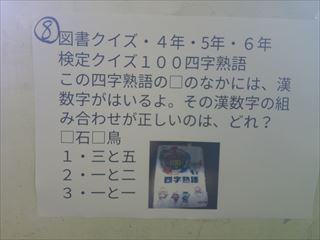 ⑧
図書クイズ・４年・５年・６年
検定クイズ１００四字熟語
この四字熟語の□のなかには、漢
数字がはいるよ。その漢数字の組
み合わせが正しいのは、どれ？
□石□鳥
１・三と五
２・一と二
３・一と一
四字熟語